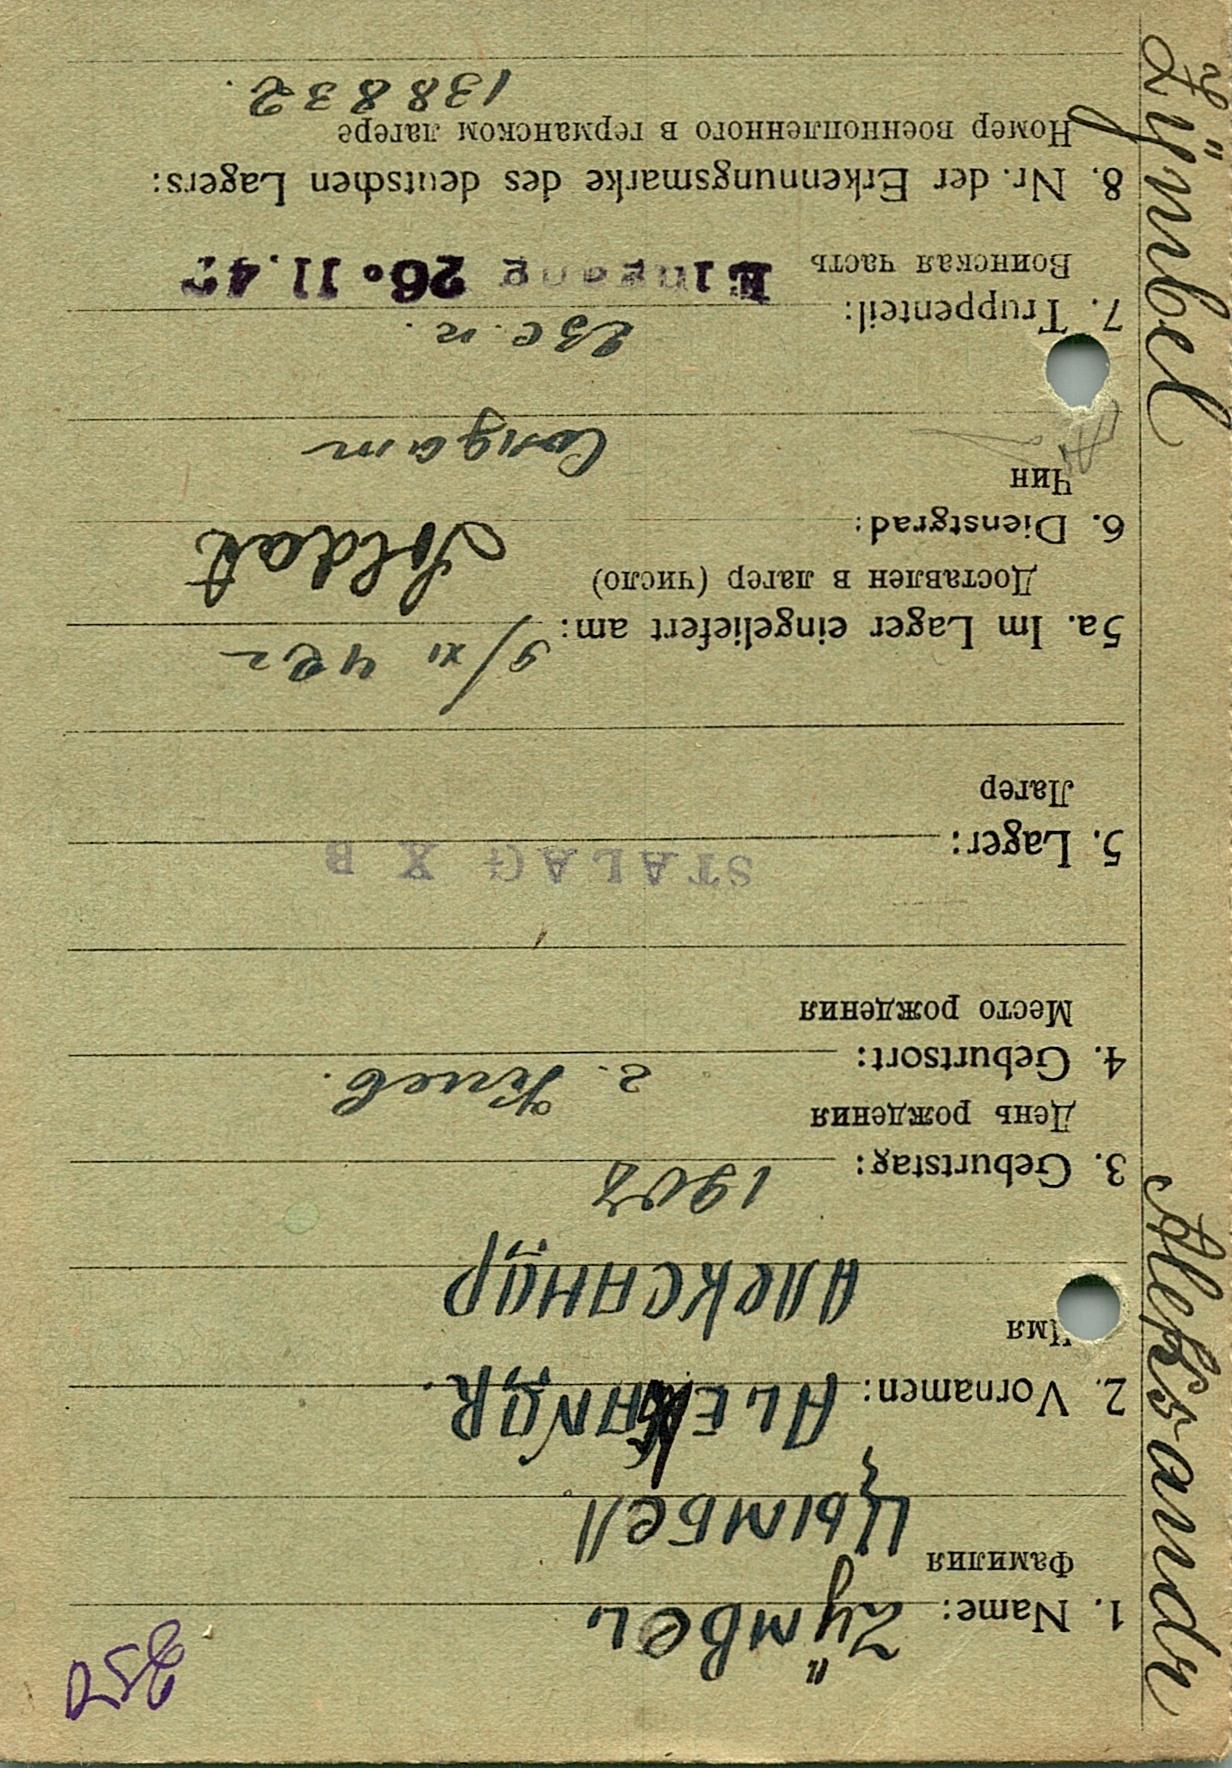 1. Name: Zÿmbel
Фамилия
Цымбел
2. Vornamen: ALEXANDR.
Имя
Александр
3. Geburtstag: 1908
День рождения
4. Geburtsort: г. Киев.
Место рождения
5. Lager: STALAG X B
Лагер
5a. Im Lager eingeliefert am: 9/XI 42 г
Доставлен в лагер (число)
6. Dienstgrad: Soldat
Чин
Солдат
7. Truppenteil:
Воинская часть Eingang 26. 11. 42
8. Nr. der Erkennungsmarke des deutschen Lagers:
Номер военнопленного в германском лагере
138832.
Zÿmbel Aleksandr